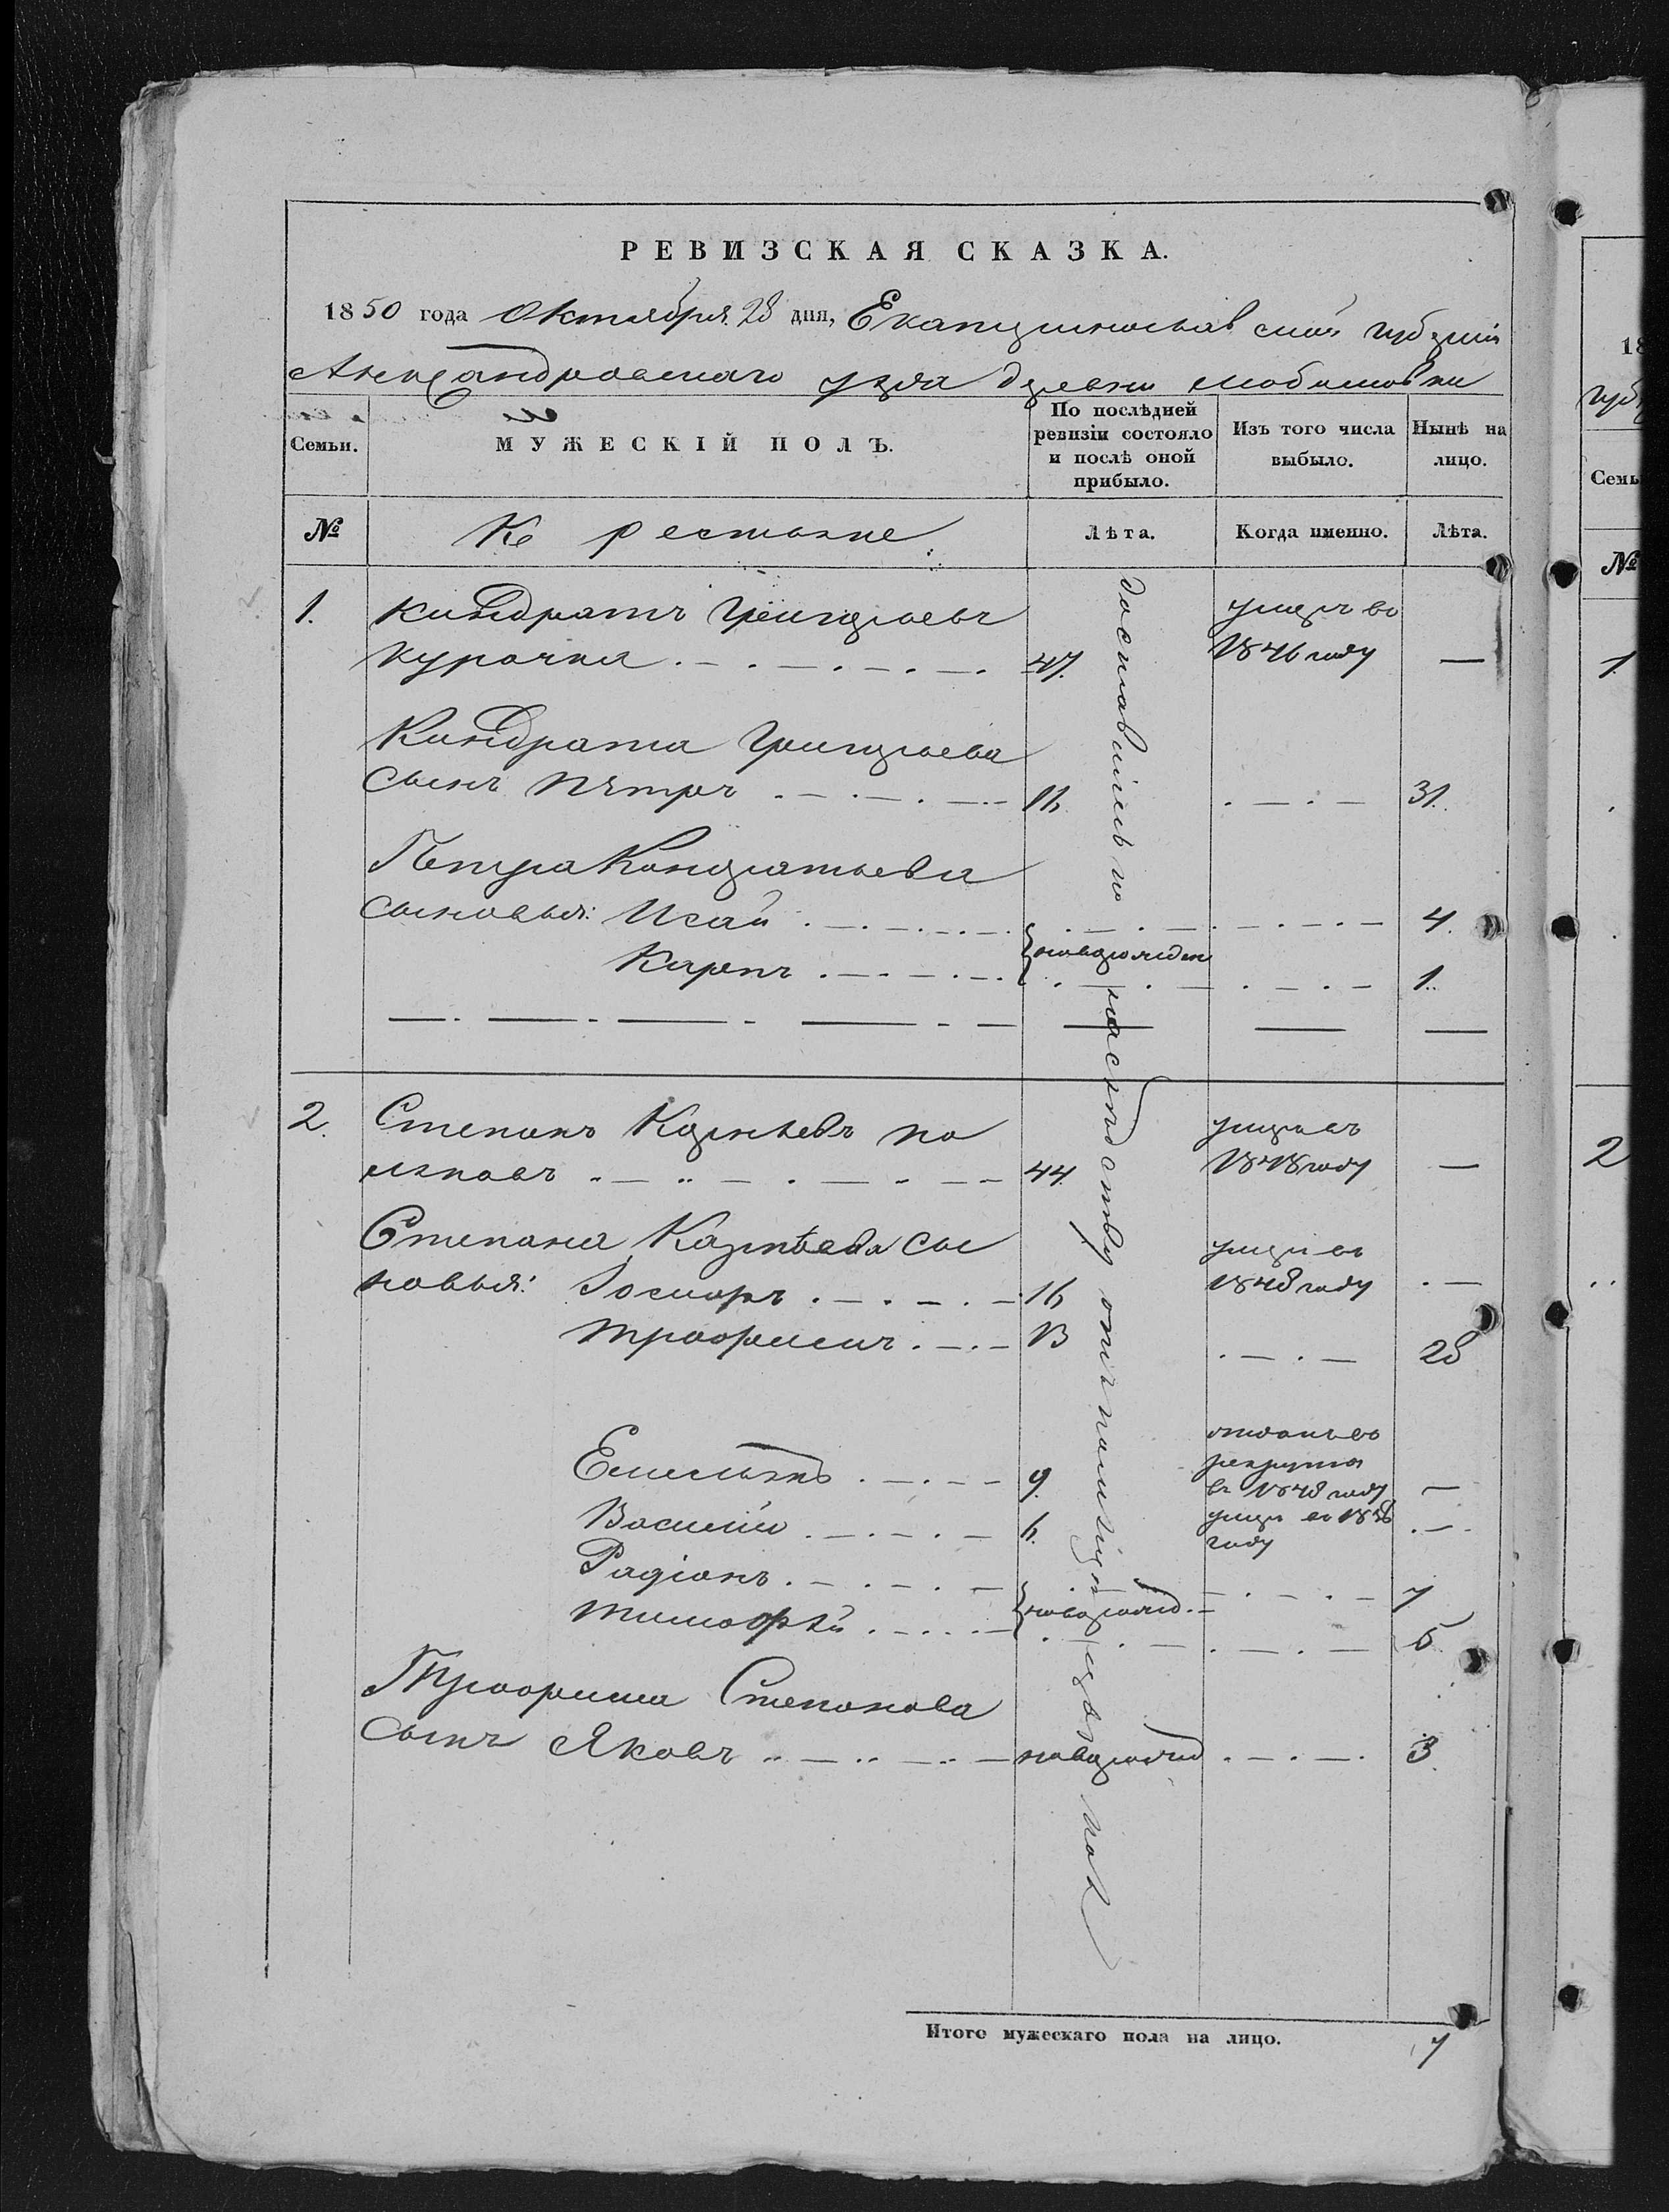 РЕВИЗСКАЯ СКАЗКА.
1850 года Октября 28 дня, Екатеринославской губернии
Александровскаго уезда деревни
Семьи.
МУЖЕСКІЙ ПОЛЪ.
По послѣдней ревизіи состояло и послѣ оной прибыло.
Изъ того числа выбыло.
Нынѣ на лицо.
№
Крестьяне
Лѣта.
Когда именно.
Лѣта.
1. Кондратъ Григорьевъ умеръ во
Курочка 47. 1846 году —
Кондрата Григорьева
сынъ Петръ 11. 31.
Петра Кондратьева
сыновья: Исай 4.
новорожден
Карпъ 1.
2. Степанъ Корнѣевъ По умеръ въ
ляковъ 44. 1848 году —
Степана Корнѣева сы умеръ въ
новья: 16 1848 году —
Трофимъ 13 28
Емельянъ 9. отданъ во рекруты въ 1848 году —
Василій 6. умеръ въ году —
Радіонъ 7
новорожд.
Тимофѣй 5
Трофима Степанова
сынъ Яковъ новорожд 3.
доставшіеся по наслѣдству отъ помѣщицы
Итого мужескаго пола на лицо. 7
18
губ
Семь
№
1.
2